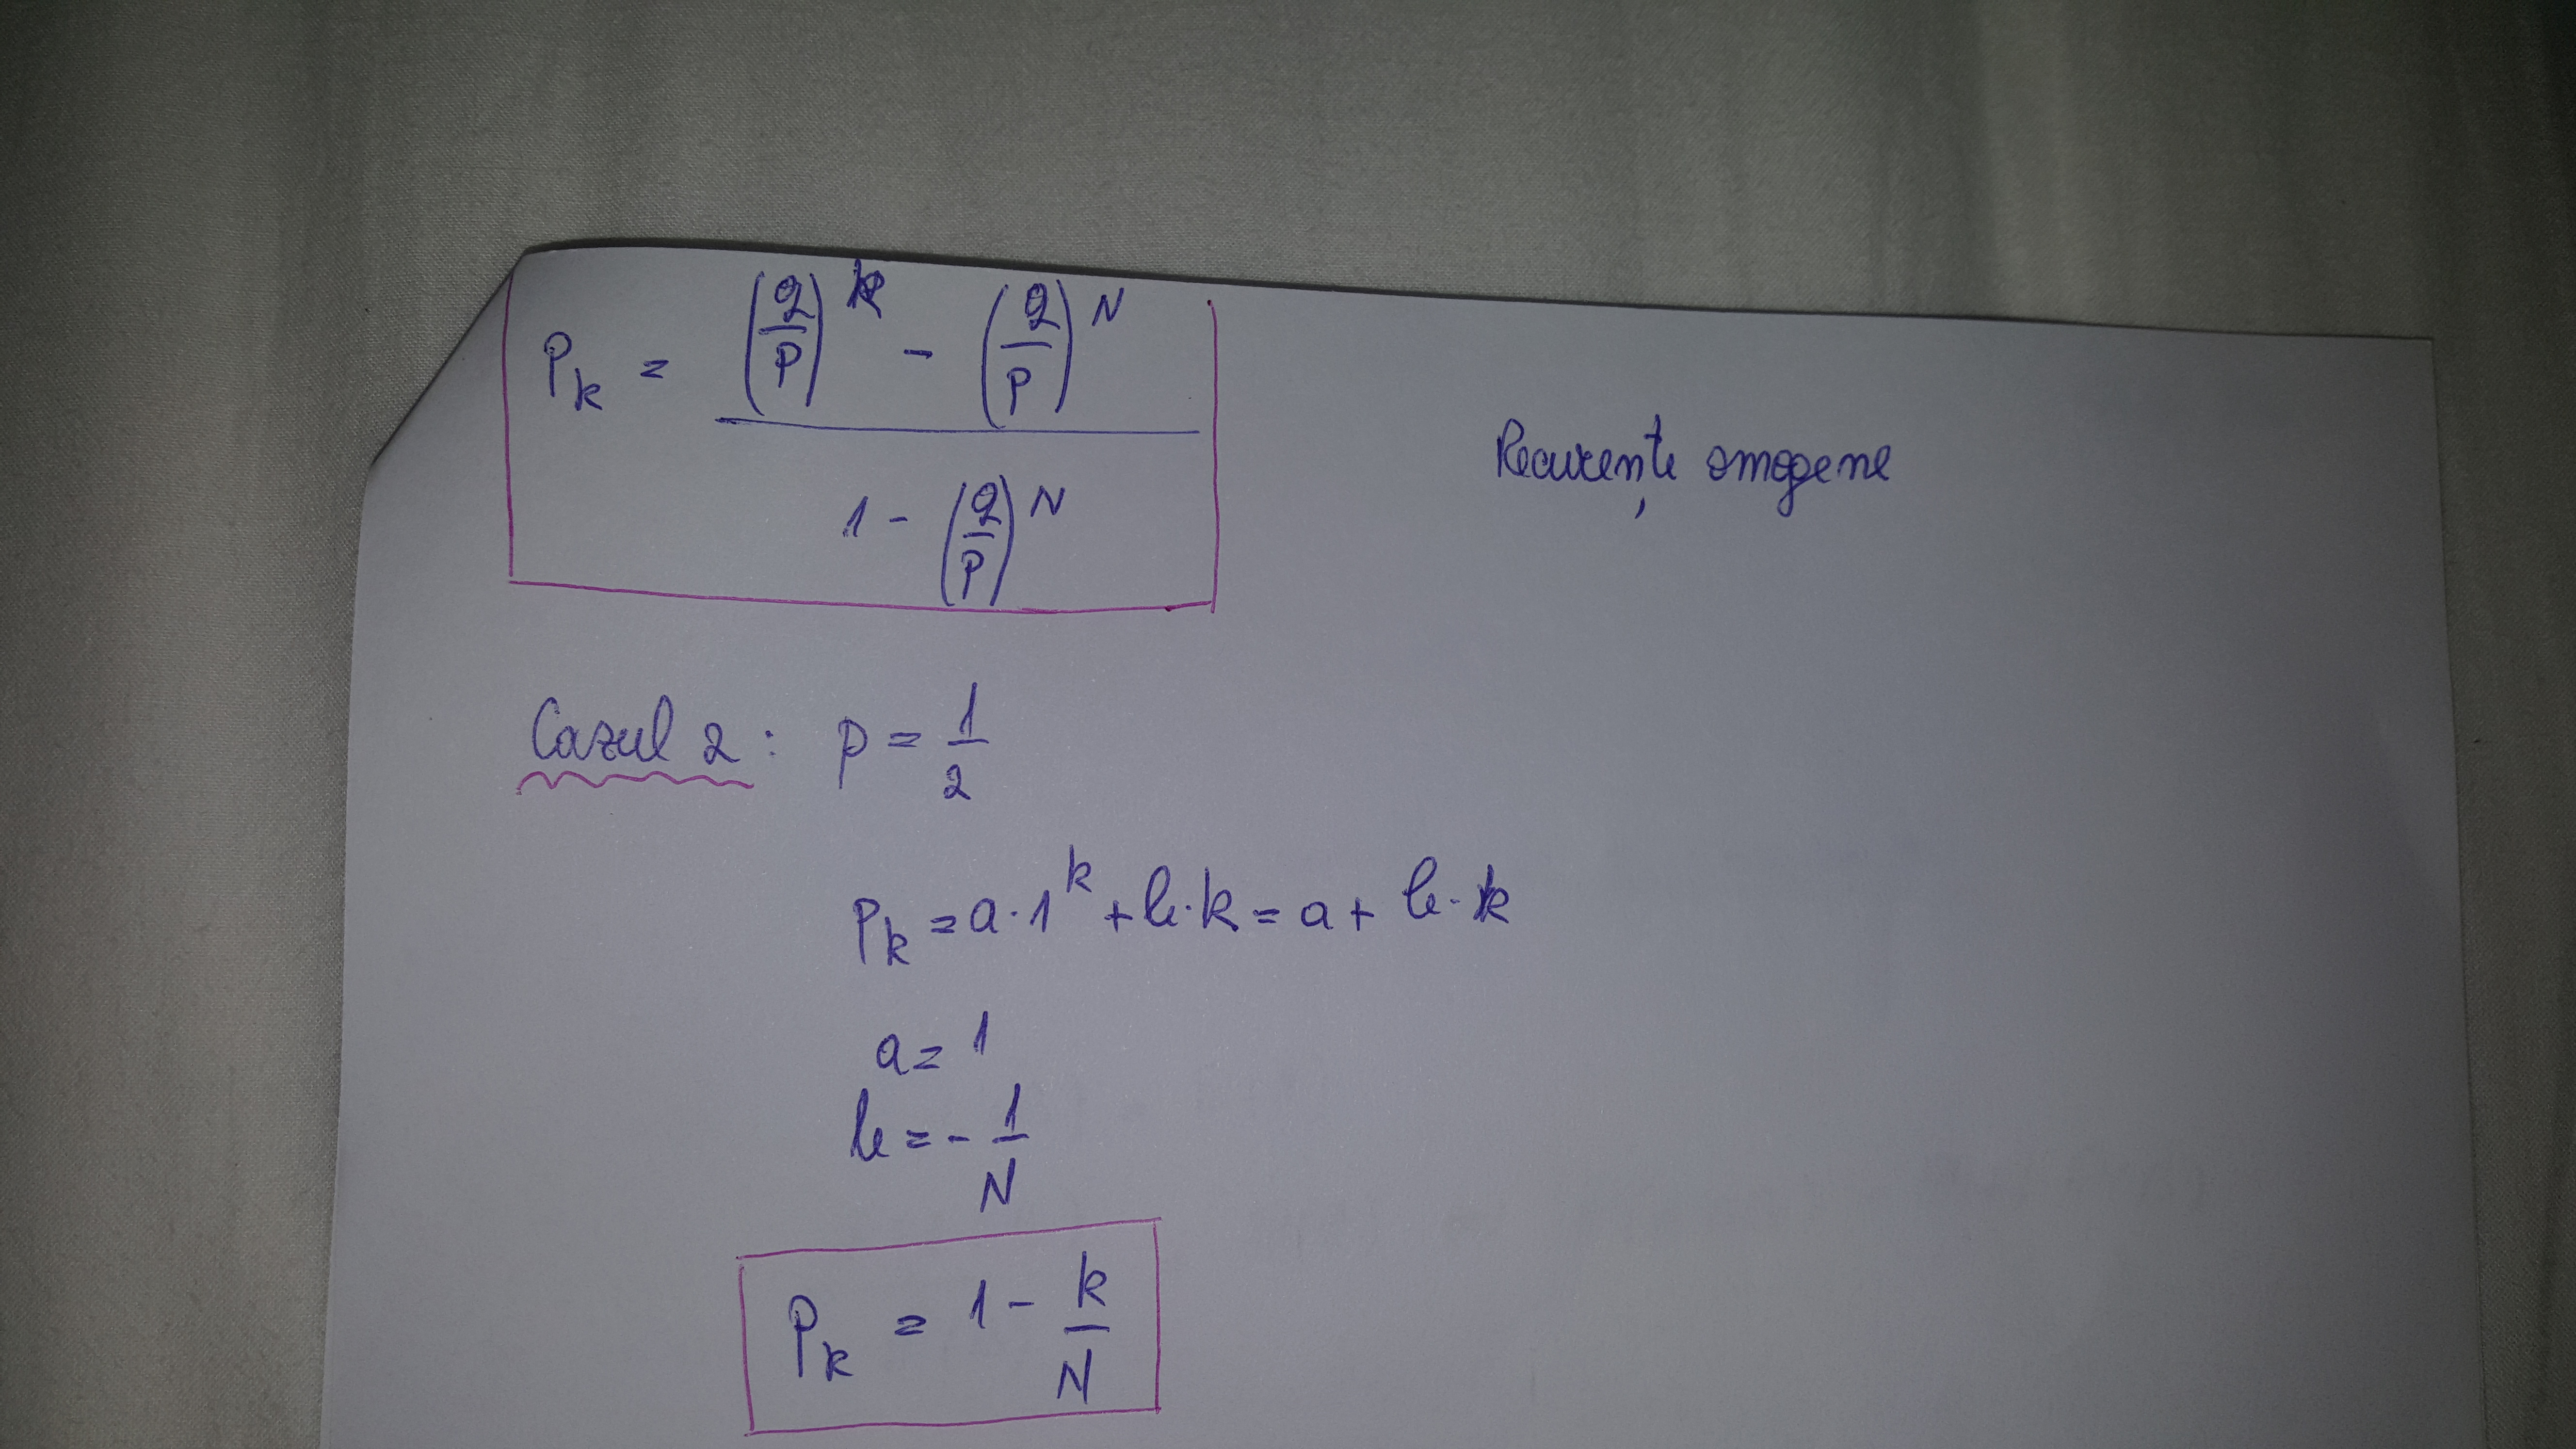 P_k = ((q/p)^k - (q/p)^N) / (1 - (q/p)^N)
Recurențe omogene
Cazul 2: p = 1/2
P_k = a·1^k + b·k = a + b·k
a = 1
b = - 1/N
P_k = 1 - k/N